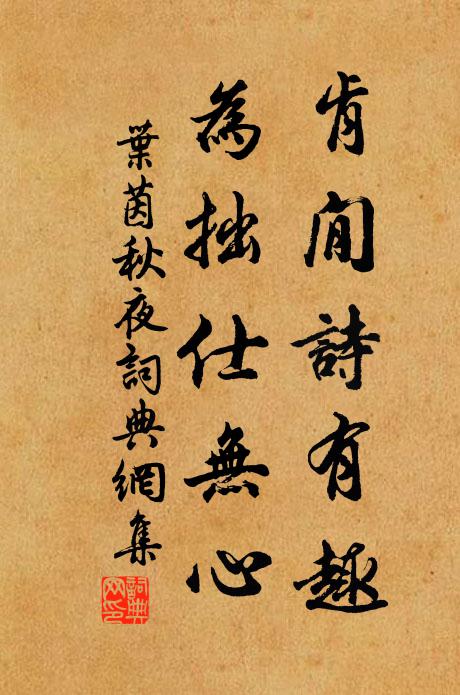 肯閒詩有趣
為拙仕無心
葉茵秋夜詞典網集
詞典网印